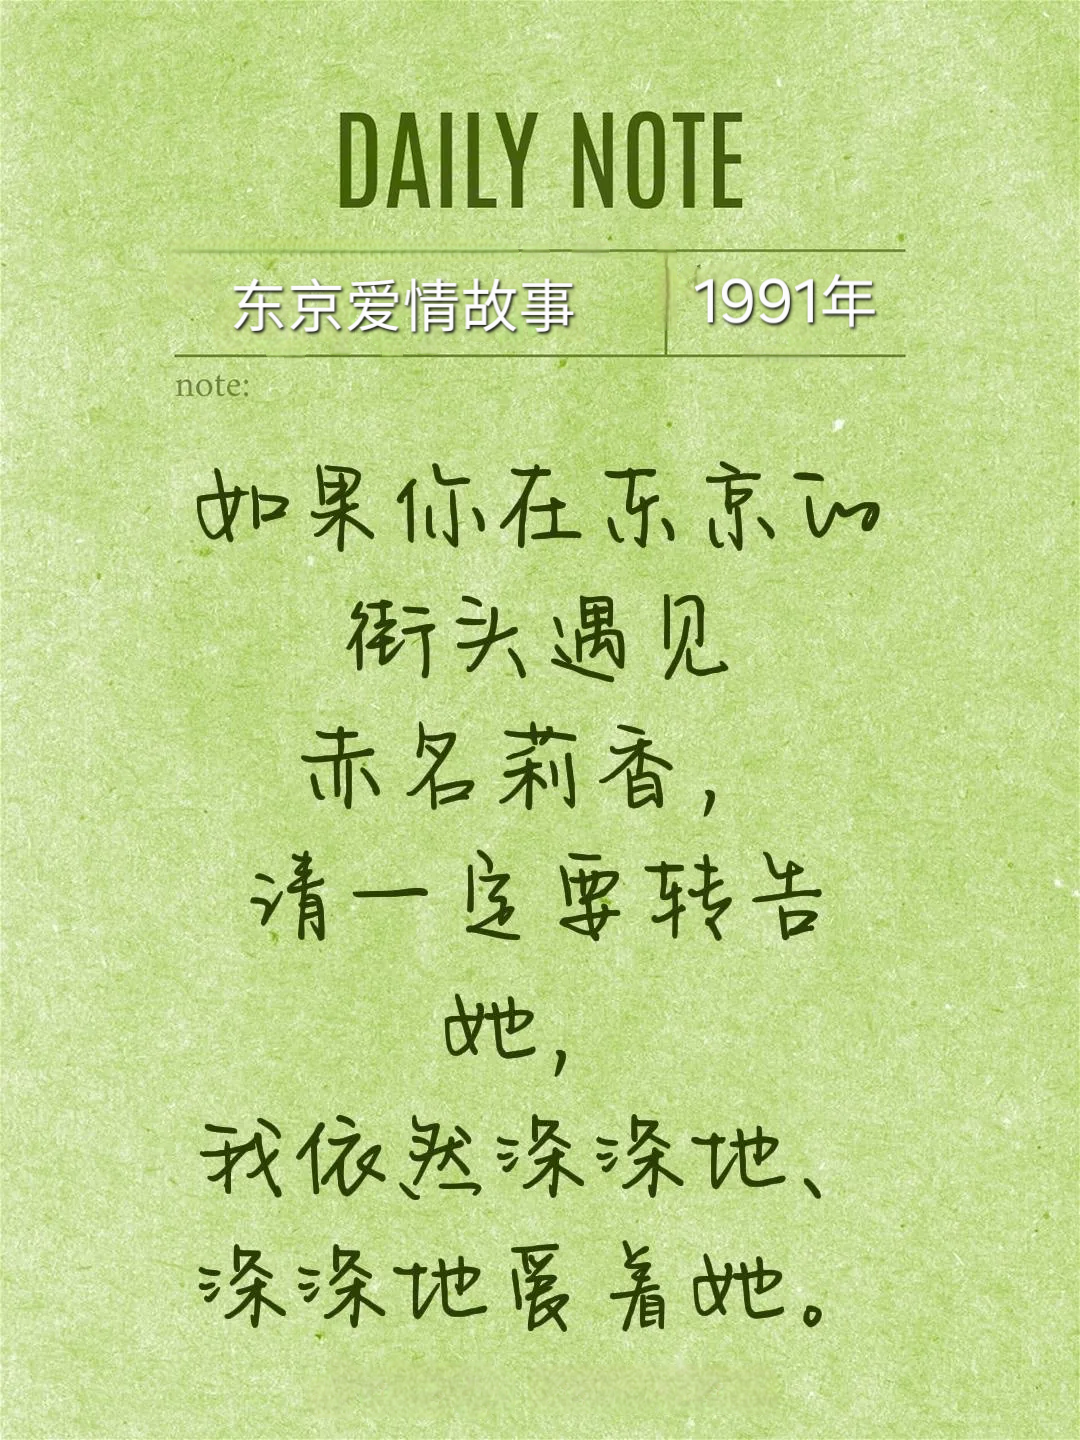 DAILY NOTE
东京爱情故事 1991年
note:
如果你在东京的
街头遇见
赤名莉香，
请一定要转告
她，
我依然深深地、
深深地爱着她。